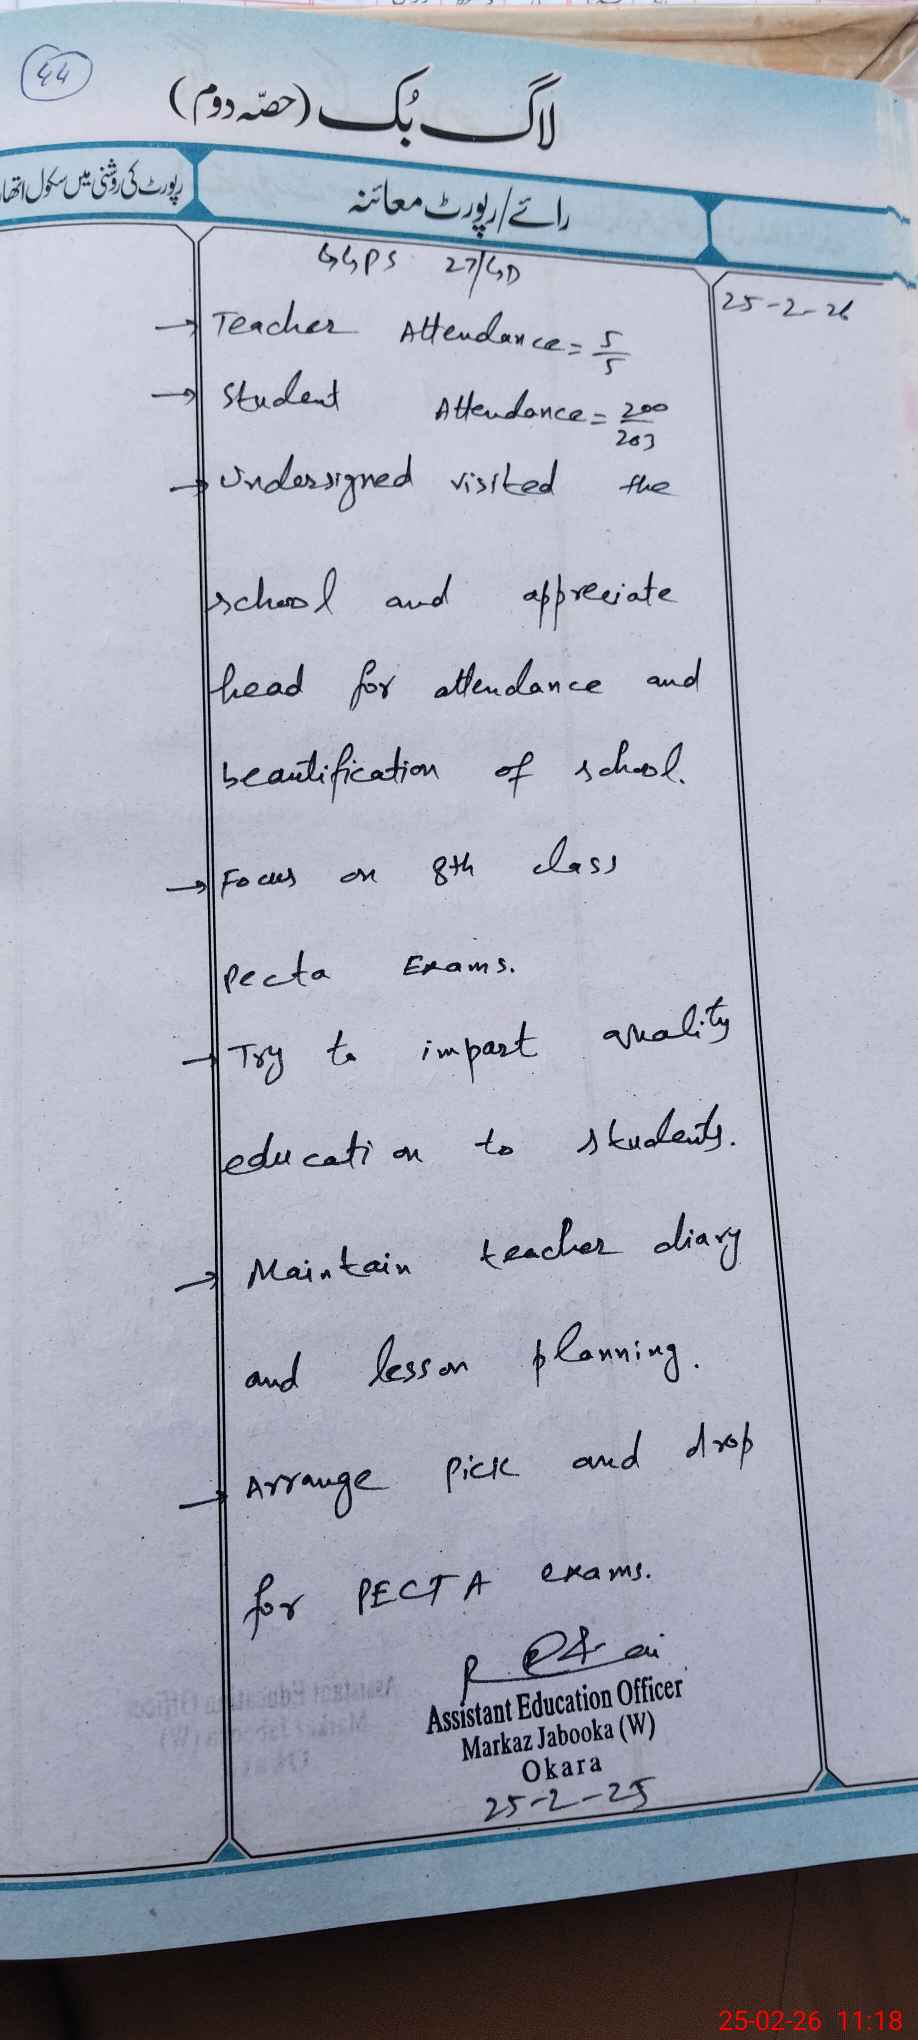 44
لاگ بُک (حصّہ دوم)
رائے/رپورٹ معائنہ
رپورٹ کی روشنی میں سکول اتھا
GGPS 27/GD
25-2-26
→ Teacher Attendance = 5/5
→ Student Attendance = 200/203
→ Undersigned visited the
school and appreciate
head for attendance and
beautification of school.
→ Focus on 8th class
Pecta Exams.
→ Try to impart quality
education to students.
→ Maintain teacher diary
and lesson planning.
→ Arrange Pick and drop
for PECTA exams.
Assistant Education Officer
Markaz Jabooka (W)
Okara
25-2-25
25-02-26 11:18